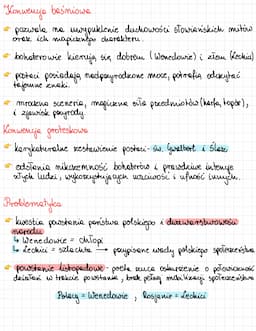 Konwencja baśniowa
pozwala na uwypuklenie duchowości słowiańskich mitów
oraz ich magicznego charakteru.
bohaterowie kierują się dobrem (Wenedowie) i złem (Lechici)
postaci posiadają nadprzyrodzone moce, potrafią odczytać
tajemne znaki.
mroczna sceneria, magiczna siła przedmiotów (harfa, topór),
i zjawisk przyrody.
Konwencja groteskowa
karykaturalne zestawienie postaci - św. Gwalbert i Ślaz
odsłania nikczemność bohaterów i prawdziwe intencje
złych ludzi, wykorzystujących uczciwość i ufność innych.
Problematyka
kwestia powstania państwa polskiego i dwuwarstwowości
narodu
↳ Wenedowie - chłopi
↳ Lechici - szlachta → przypisane wady polskiego społeczeństwa
powstanie listopadowe - poeta rzuca oskarżenie o połowiczność
działań w trakcie powstania, brak pełnej mobilizacji społeczeństwa
Polacy = Wenedowie, Rosjanie = Lechici